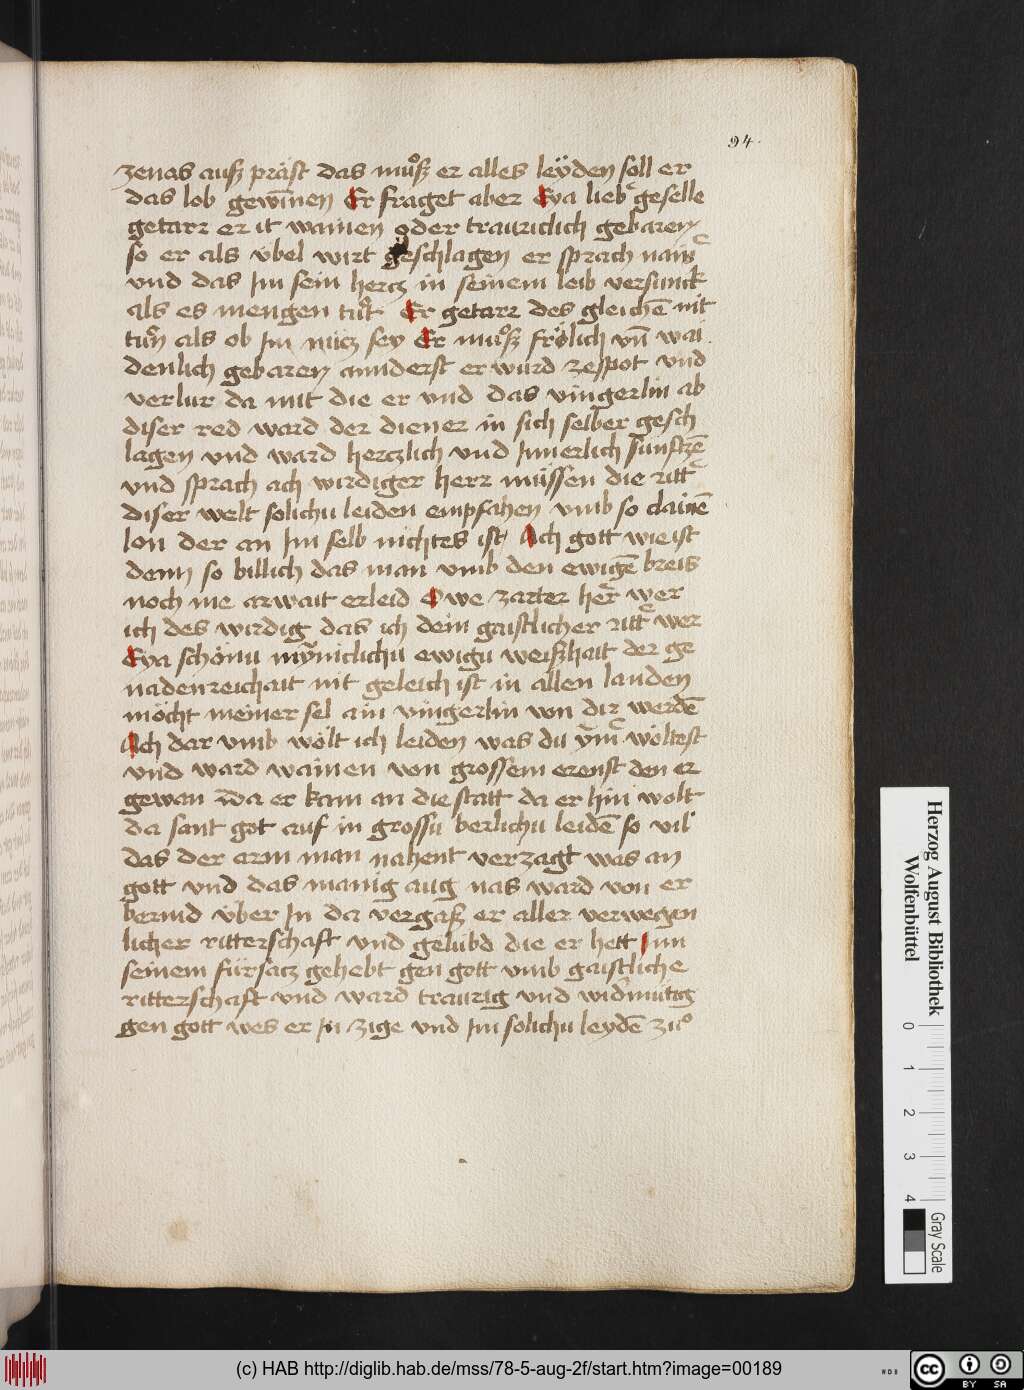 94.
zenas ausz präst das muͦsz er alles leÿden soll er
das lob gewīnen Er fraget aber Eya lieb geselle
getarr er it wainen oder trauriclich gebaren
so er als übel wirt geschlagen er sprach nain
und das Im sein hercz in seinem leib versunck
als es mengen tuͦt Er getarr des gleichē nit
tuͦn als ob Im nücz sey Er muͦsz frölich vn̄ wai
denlich gebaren annderst er wurd zespot und
verlur da mit die er und das vingerlin ab
diser red ward der diener in sich selber gesch
lagen und ward herczlich und Innerlich sünftzē
und sprach ach wirdiger herr müssen die ritt
diser welt solichu leiden empfahen umb so clainē
lon der an Im selb nichtes ist Ach gott wie ist
denn so billich das man umb den ewigē breis
noch me arwait erleid Owe zarter her wer
ich des wirdig das ich dein gaistlicher ritt wer
Eya schönu mÿniclichu ewigu weiszhait der ge
nadenreichait nit geleich ist in allen landen
möcht meiner sel ain vingerlin von dir werdē
Ach dar umb wölt ich leiden was du ym̄ wöltest
und ward wainen von grossem erenst den er
gewan Da er kam an die statt da er hin wolt
da sant got auf in grossu berlichu leidē so vil
das der arm man nahent verzagt was an
gott und das manig aug nas ward von er
bermd über In da vergasz er aller verwegen
licher ritterschaft und gelübd die er hett Inn
seinem fürsacz gehebt gen gott umb gaistliche
ritterschaft und ward traurig und widmütig
gen gott wes er In zige und Im solichu leydē zuͦ
Herzog August Bibliothek
Wolfenbüttel
0 1 2 3 4
Gray Scale
(c) HAB http://diglib.hab.de/mss/78-5-aug-2f/start.htm?image=00189
cc BY SA